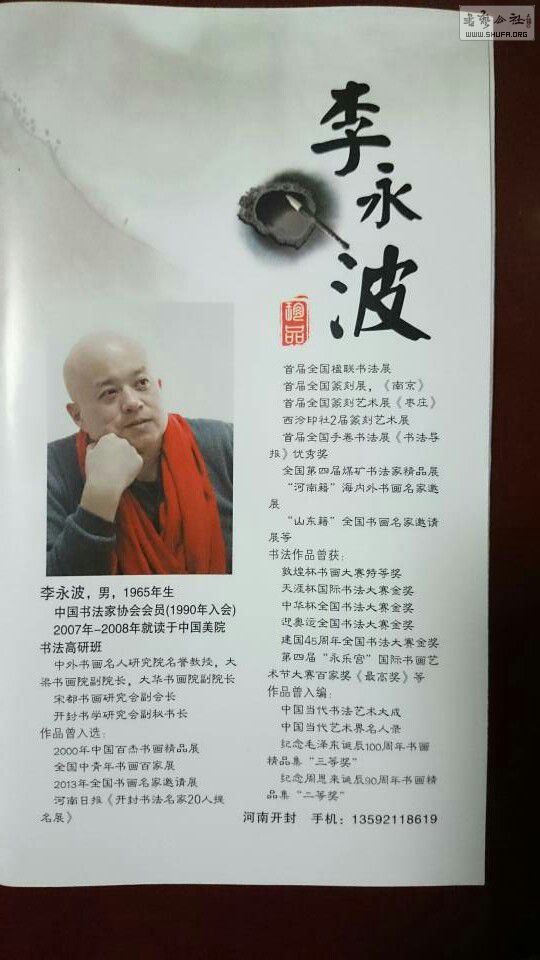 WWW.SHUFA.ORG
李永波
珍品
李永波，男，1965年生
中国书法家协会会员(1990年入会)
2007年-2008年就读于中国美院
书法高研班
中外书画名人研究院名誉教授，大
梁书画院副院长，大华书画院副院长
宋都书画研究会副会长
开封书学研究会副秘书长
作品曾入选：
2000年中国百杰书画精品展
全国中青年书画百家展
2013年全国书画名家邀请展
河南日报《开封书法名家20人提
名展》
首届全国楹联书法展
首届全国篆刻展，《南京》
首届全国篆刻艺术展《枣庄》
西泠印社2届篆刻艺术展
首届全国手卷书法展《书法导
报》优秀奖
全国第四届煤矿书法家精品展
“河南籍”海内外书画名家邀
展
“山东籍”全国书画名家邀请
展等
书法作品曾获：
敦煌杯书画大赛特等奖
天涯杯国际书法大赛金奖
中华杯全国书法大赛金奖
迎奥运全国书法大赛金奖
建国45周年全国书法大赛金奖
第四届“永乐宫”国际书画艺
术节大赛百家奖《最高奖》等
作品曾入编：
中国当代书法艺术大成
中国当代艺术界名人录
纪念毛泽东诞辰100周年书画
精品集“三等奖”
纪念周恩来诞辰90周年书画精
品集“二等奖”
河南开封 手机：13592118619